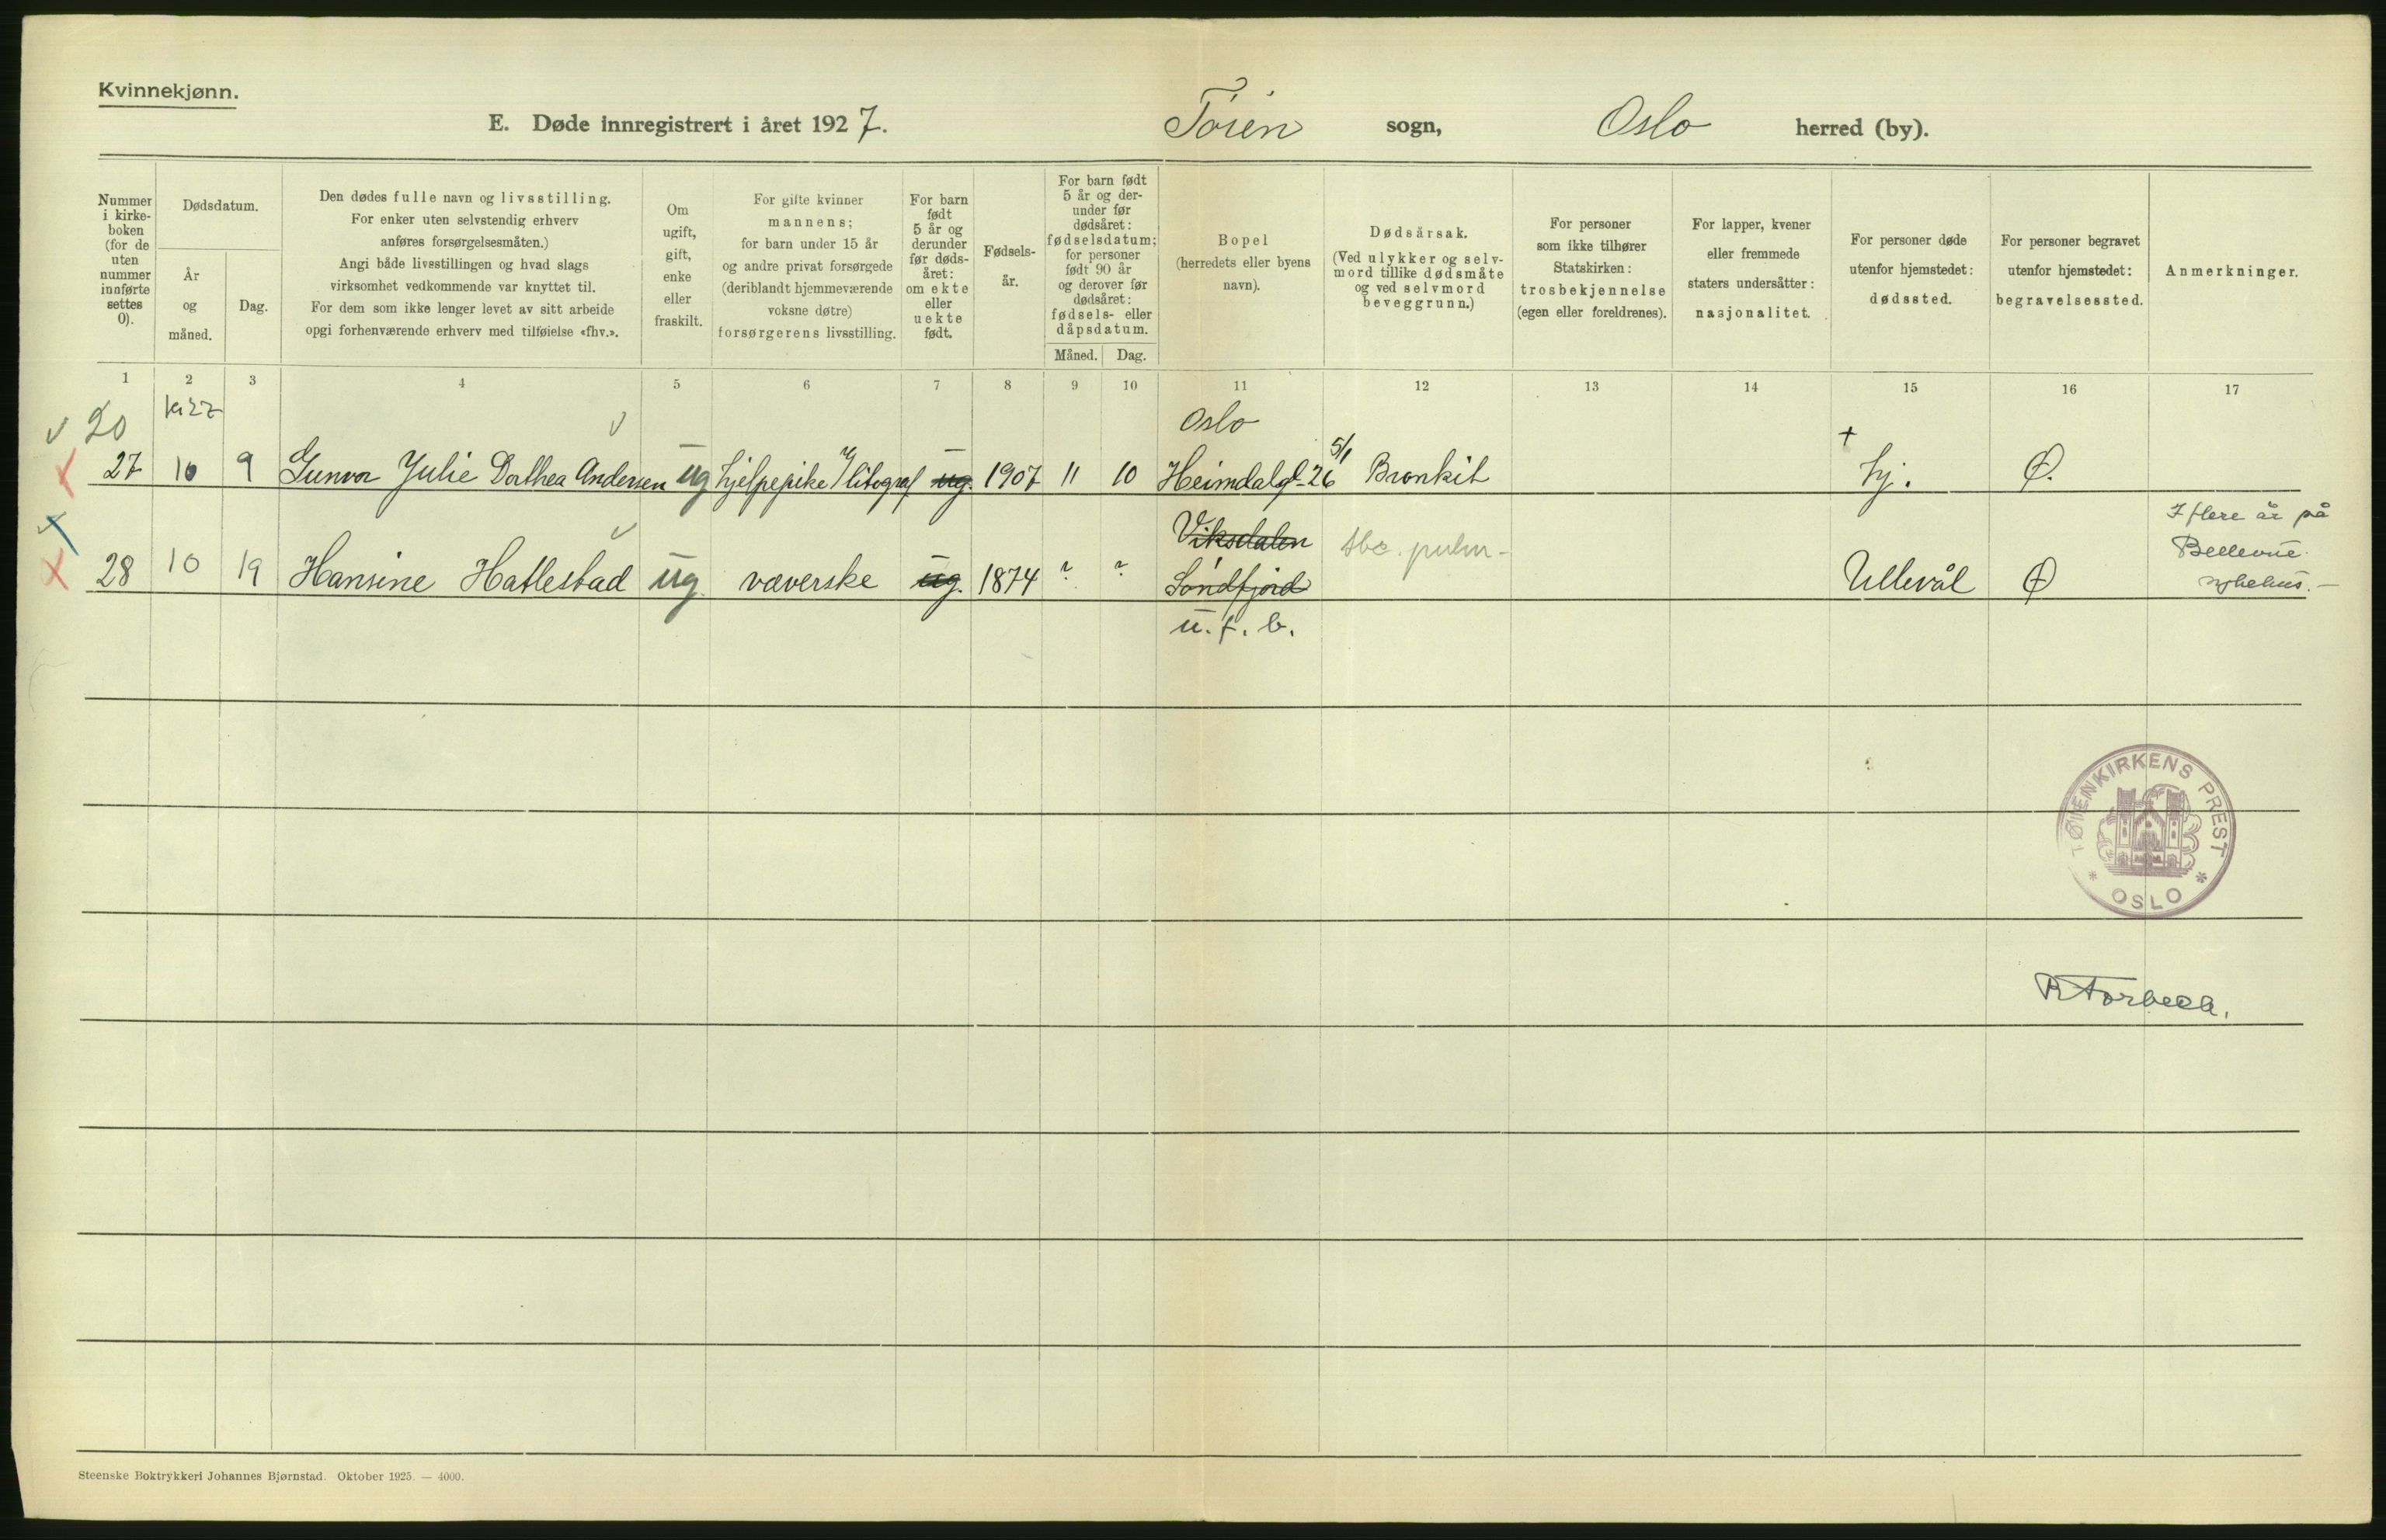 Kvinnekjønn.
E. Døde innregistrert i året 1927. Tøien sogn, Oslo herred (by).
Nummer i kirkeboken (for de uten nummer innførte settes 0).
Dødsdatum.
År og måned.
Dag.
Den dødes fulle navn og livsstilling.
For enker uten selvstendig erhverv
anføres forsørgelsesmåten.)
Angi både livsstillingen og hvad slags
virksomhet vedkommende var knyttet til.
For dem som ikke lenger levet av sitt arbeide
opgi forhenværende erhverv med tilføielse «fhv.».
Om
ugift,
gift,
enke
eller
fraskilt.
For gifte kvinner
mannens;
for barn under 15 år
og andre privat forsørgede
(deriblandt hjemmeværende
voksne døtre)
forsørgerens livsstilling.
For barn
født
5 år og
derunder
før døds-
året:
om ekte
eller
uekte
født.
Fødsels-
år.
For barn født
5 år og der-
under før
dødsåret:
fødselsdatum;
for personer
født 90 år
og derover før
dødsåret:
fødsels- eller
dåpsdatum.
Måned. Dag.
Bopel
(herredets eller byens
navn).
Dødsårsak.
(Ved ulykker og selv-
mord tillike dødsmåte
og ved selvmord
beveggrunn.)
For personer
som ikke tilhører
Statskirken:
trosbekjennelse
(egen eller foreldrenes).
For lapper, kvener
eller fremmede
staters undersåtter:
nasjonalitet.
For personer døde
utenfor hjemstedet:
dødssted.
For personer begravet
utenfor hjemstedet:
begravelsessted.
Anmerkninger.
1 2 3 4 5 6 7 8 9 10 11 12 13 14 15 16 17
20 Oslo
27 10 9 Gunvor Julie Dorthea Andersen ug hjelpepike litograf ug. 1907 11 10 Heimdalgt-26 5/1 Bronkit + hj. Ø.
28 10 19 Hansine Hatlestad ug. væverske ug. 1874 ? ? Viksdalen Søndfjord tbc. pulm- Ullevål Ø
I flere år på
Bellevue
sykehus.-
u. f. b.
TØIENKIRKENS PREST
* OSLO *
Steenske Boktrykkeri Johannes Bjørnstad. Oktober 1925. — 4000.